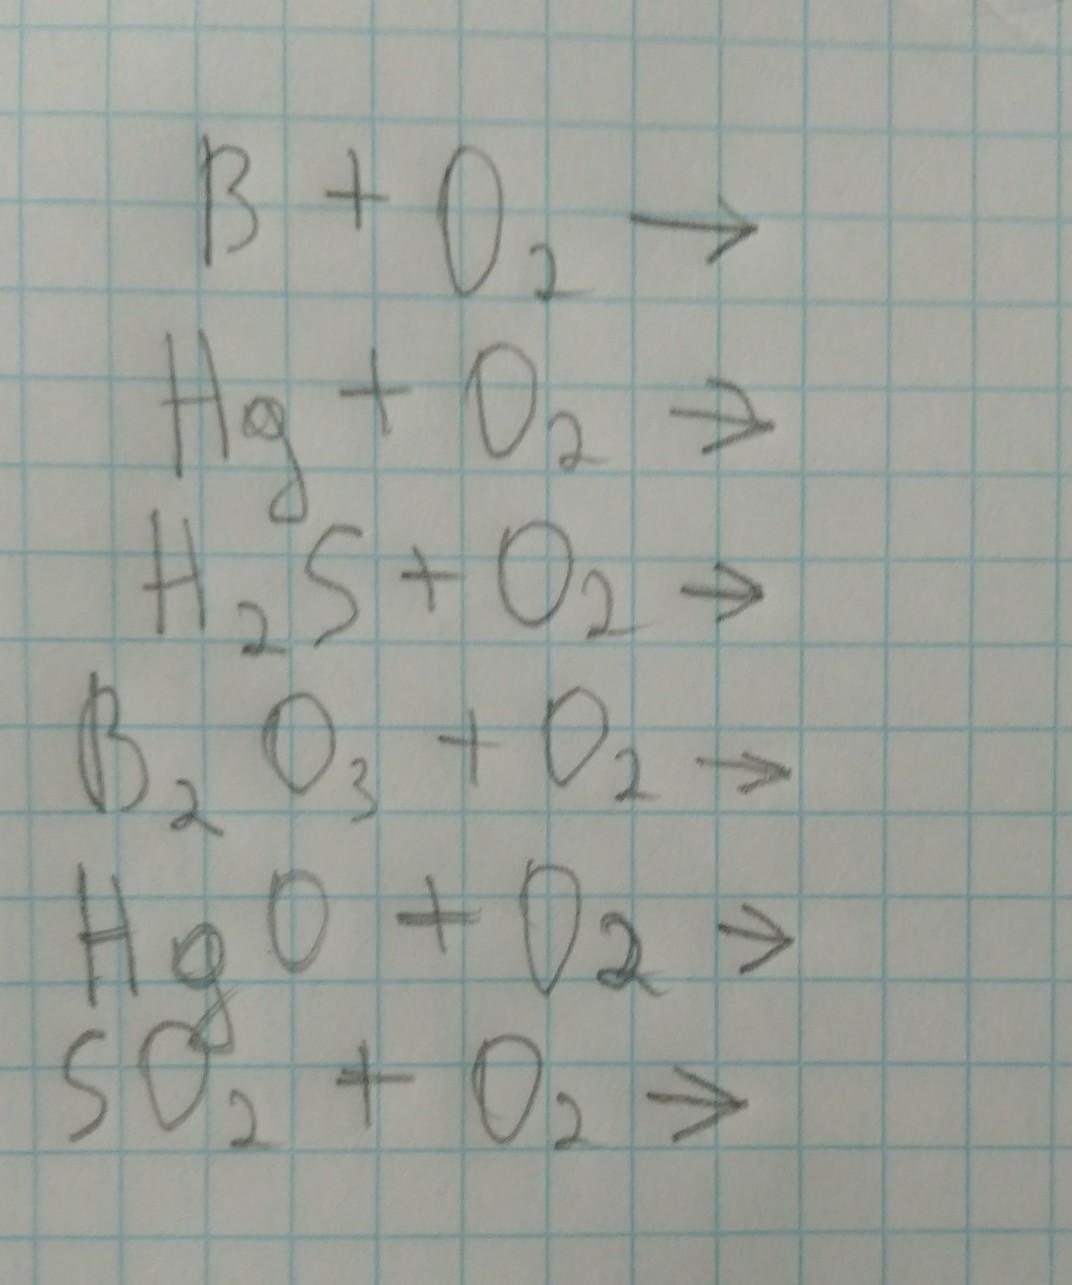 B + O₂ →
Hg + O₂ →
H₂S + O₂ →
B₂O₃ + O₂ →
HgO + O₂ →
SO₂ + O₂ →